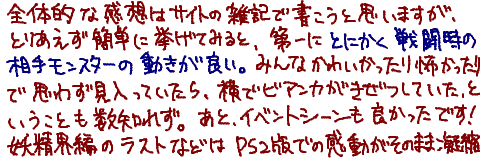 全体的な感想はサイトの雑記で書こうと思いますが、
とりあえず簡単に挙げてみると、第一にとにかく戦闘時の
相手モンスターの動きが良い。みんなかわいかったり怖かったり
で思わず見入っていたら、横でビアンカがきぜつしていた、と
いうことも数知れず。あと、イベントシーンも良かったです!
妖精界編のラストなどはPS2版での感動がそのまま凝縮